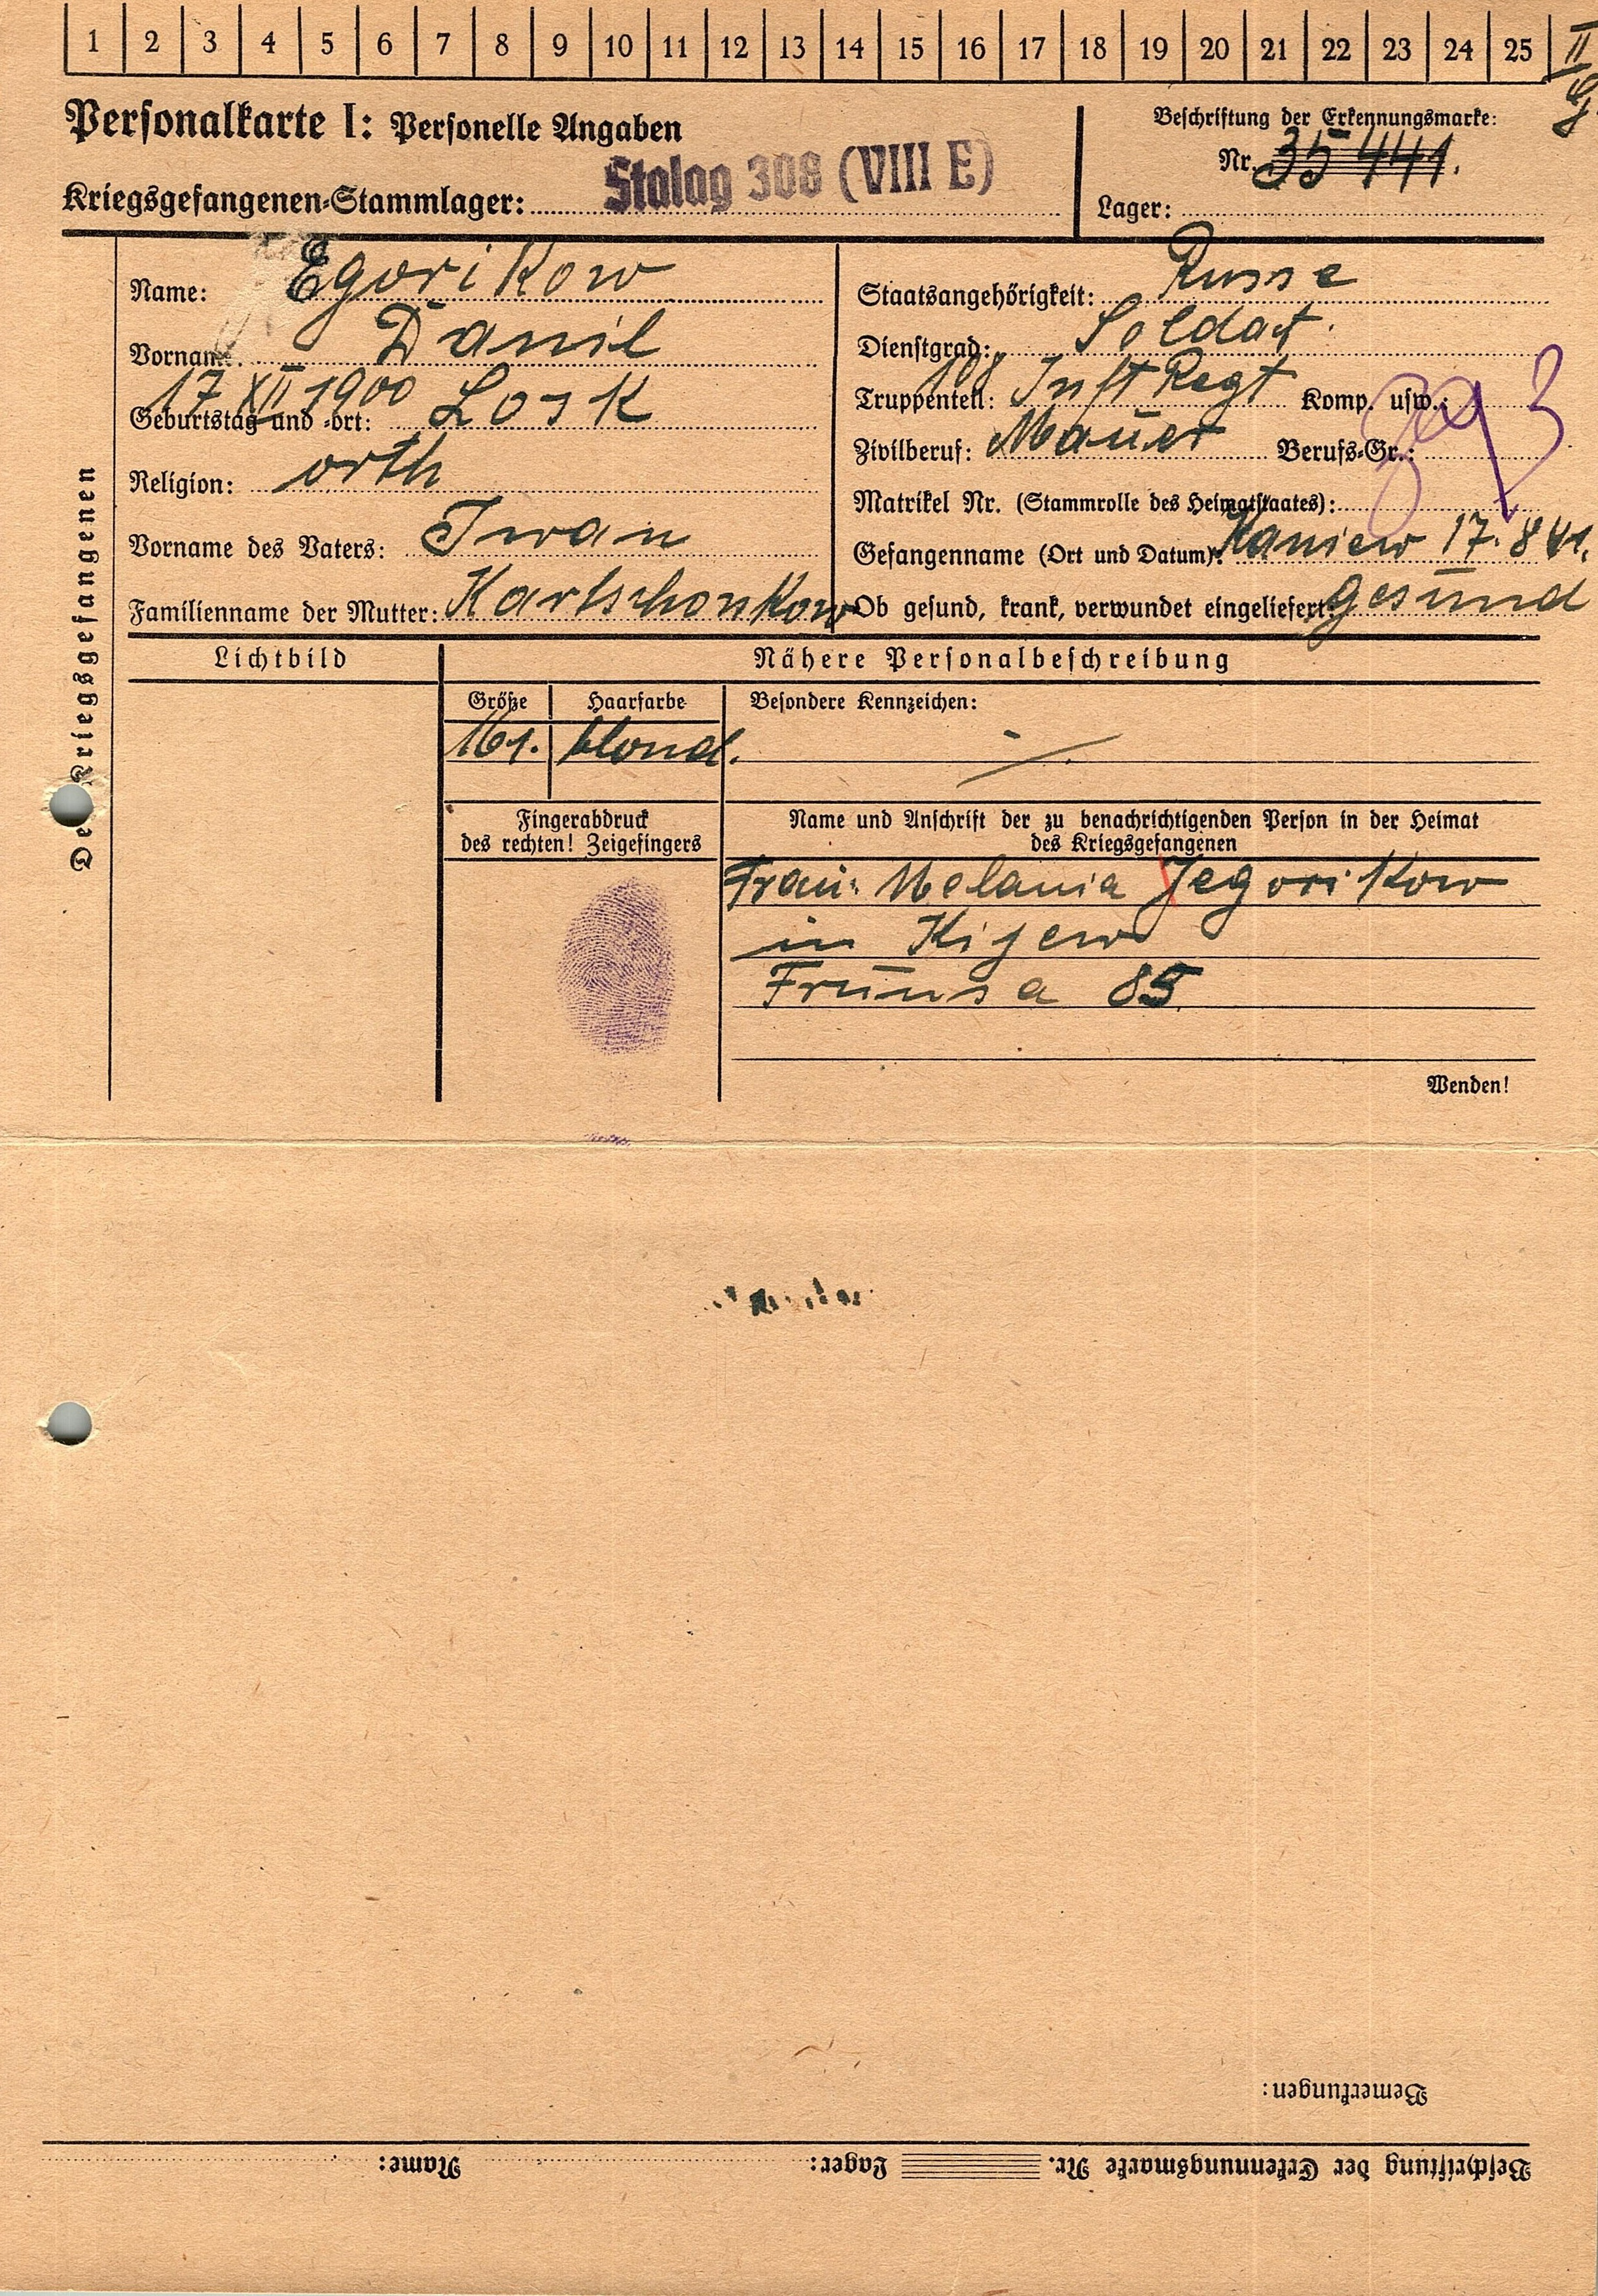 1 2 3 4 5 6 7 8 9 10 11 12 13 14 15 16 17 18 19 20 21 22 23 24 25 II
Personalkarte I: Personelle Angaben
Beschriftung der Erkennungsmarke:
Nr. 35 441.
Kriegsgefangenen-Stammlager: Stalag 308 (VIII E)
Lager:
Des Kriegsgefangenen
Name: Egorikow
Vorname: Danil
17 XII 1900
Geburtstag und -ort: Losk
Religion: orth
Vorname des Vaters: Iwan
Familienname der Mutter: Kartschonkow
Staatsangehörigkeit: Russe
Dienstgrad: Soldat.
Truppenteil: Inft Regt Komp. usw.:
Zivilberuf: Mauer Berufs-Gr.:
Matrikel Nr. (Stammrolle des Heimatstaates):
Gefangenname (Ort und Datum): Kaniew 17.8 41.
Ob gesund, krank, verwundet eingeliefert: gesund
Lichtbild
Nähere Personalbeschreibung
Größe Haarfarbe Besondere Kennzeichen:
161. blond.
Fingerabdruck
des rechten! Zeigefingers
Name und Anschrift der zu benachrichtigenden Person in der Heimat
des Kriegsgefangenen
Frau: Melania Jegorikow
in Kijew
Frunsa 85
Wenden!
Bemerkungen:
Beschriftung der Erkennungsmarke Nr. Lager: Name: